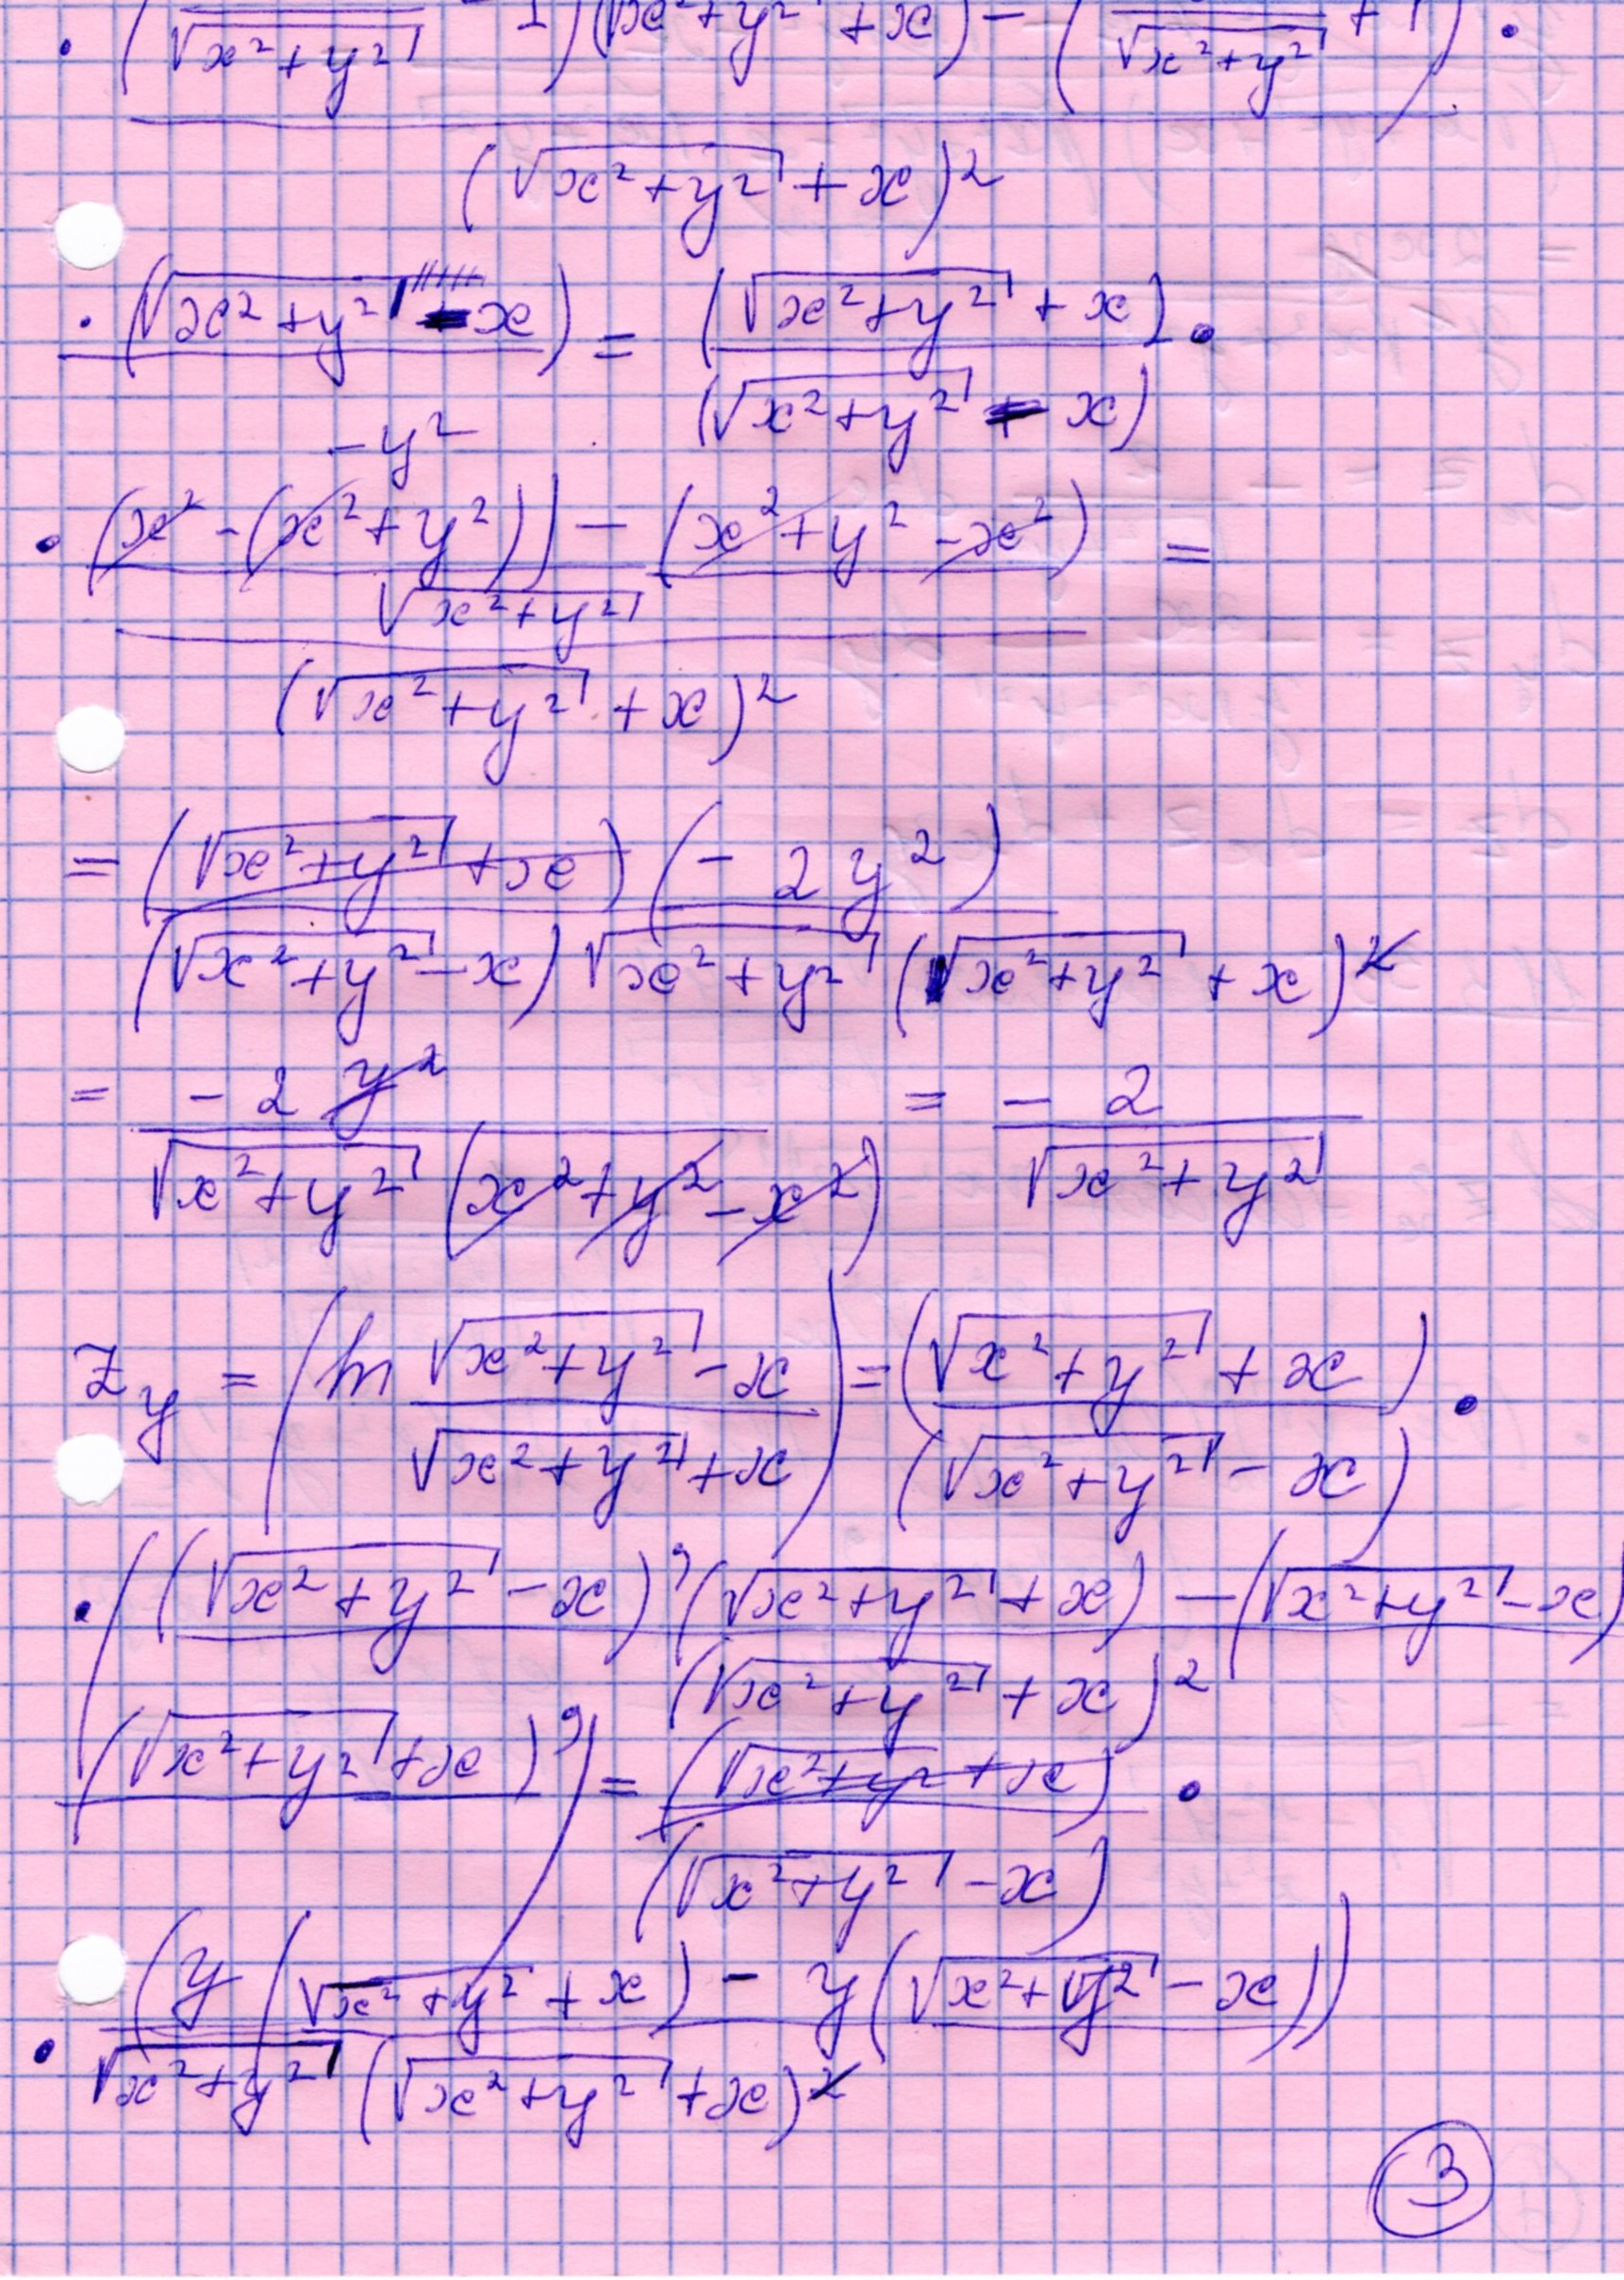 • ( / √(x²+y²) - 1)(√(x²+y²) + x) - ( / √(x²+y²) + 1) •
(√(x²+y²) + x)²
• (√(x²+y²) - x) = (√(x²+y²) + x) •
(√(x²+y²) - x)
-y²
• (x² - (x²+y²)) - (x²+y² - x²) =
√(x²+y²)
(√(x²+y²) + x)²
= (√(x²+y²) + x) (- 2y²)
(√(x²+y²) - x) √(x²+y²) (√(x²+y²) + x)²
= - 2 y² = - 2
√(x²+y²) (x²+y²-x²) √(x²+y²)
z_y = (ln √(x²+y²) - x / √(x²+y²) + x) = (√(x²+y²) + x) •
(√(x²+y²) - x)
• ((√(x²+y²) - x)' (√(x²+y²) + x) - (√(x²+y²) - x)
(√(x²+y²) + x)²
(√(x²+y²) + x)') = (√(x²+y²) + x) •
(√(x²+y²) - x)
• (y (√(x²+y²) + x) - y (√(x²+y²) - x))
√(x²+y²) (√(x²+y²) + x)²
3